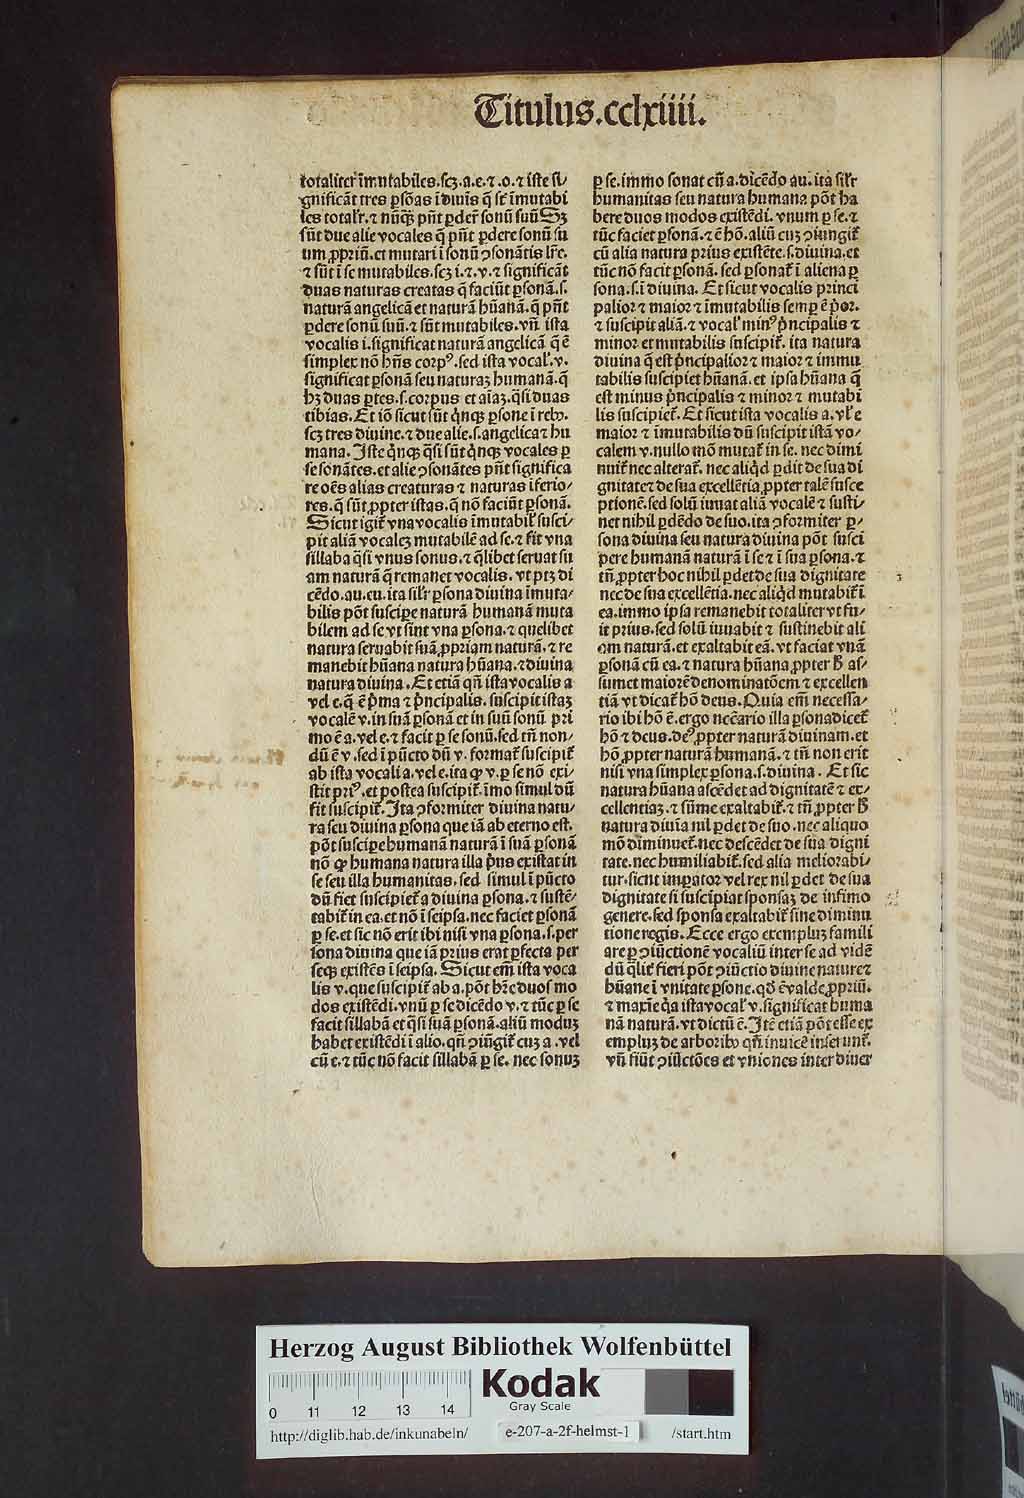 Titulus.cclxiiii.
totaliter̃ im̃utabiles.scꝫ.a.e.⁊.o.⁊ iste si/
gnificãt tres ꝑsõas ĩ diuĩs q̃ sũt ĩmutabi
les totalr̃.⁊ nũqꝫ pñt ꝑder̃ sonũ suũ Sꝫ
sũt due alie vocales q̃ pñt ꝑdere sonũ su
um ꝓpriũ.et mutari ĩ sonũ ↄsonãtis lr̃e.
⁊ sũt ĩ se mutabiles.scꝫ i.⁊.v.⁊ significãt
duas naturas creatas q̃ faciũt ꝑsonã.s.
naturã angelicã et naturã hũanã.q̃ pñt
ꝑdere sonũ suũ.⁊ sũt mutabiles.vñ ista
vocalis i.significat naturã angelicã q̃ ẽ
simplex nõ hñs corpꝰ.sed ista vocal̃.v.
significat ꝑsonã seu naturaꝫ humanã.q̃
hꝫ duas ꝑtes.s.corpus et aĩaꝫ.q̃si duas
tibias. Et iõ sicut sũt q̃nqꝫ ꝑsone ĩ rebꝰ.
scꝫ tres diuine.⁊ due alie.s.angelica⁊ hu
mana. Iste q̃nqꝫ q̃si sũt q̃nqꝫ vocales ꝑ
se sonãtes.et alie ↄsonãtes pñt significa
re oẽs alias creaturas ⁊ naturas ĩferio/
res.q̃ sũt ꝓpter istas.q̃ nõ faciũt ꝑsonã.
Sicut igit̃ vna vocalis ĩmutabil̃ susci/
pit aliã vocaleꝫ mutabilẽ ad se.⁊ fit vna
sillaba q̃si vnus sonus.⁊ q̃libet seruat su
am naturã q̃ remanet vocalis. vt ptꝫ di
cẽdo.au.eu.ita sil̃r ꝑsona diuina ĩmuta/
bilis põt suscipe naturã humanã muta
bilem ad se vt sint vna ꝑsona.⁊ quelibet
natura seruabit suã ꝓpriam naturã.⁊ re
manebit hũana natura hũana.⁊diuina
natura diuina. Et etiã qñ ista vocalis a
vel e.q̃ ẽ p̃ma ⁊ p̃ncipalis. suscipit istaꝫ
vocalẽ v.in suã ꝑsonã et in suũ sonũ pri
mo ẽ a.vel e.⁊ facit ꝑ se sonũ.sed tñ non/
dũ ẽ v.sed ĩ pũcto dũ v. format̃ suscipit̃
ab ista vocali a.vel e.ita ꝙ v.ꝑ se nõ exi/
stit priꝰ.et postea suscipit̃.ĩmo simul dũ
fit suscipit̃. Ita ↄformiter diuina natu/
ra seu diuina ꝑsona que iã ab eterno est.
põt suscipe humanã naturã ĩ suã ꝑsonã
nõ ꝙ humana natura illa p̃us existat in
se seu illa humanitas.sed simul ĩ pũcto
dũ fiet suscipiet̃ a diuina ꝑsona.⁊ sustẽ/
tabit̃ in ea.et nõ ĩ seipsa.nec faciet ꝑsonã
ꝑ se.et sic nõ erit ibi nisi vna ꝑsona.s.per
sona diuina que iã prius erat ꝑfecta per
seqꝫ existẽs ĩ seipsa. Sicut em̃ ista voca
lis v.que suscipit̃ ab a.põt hr̃e duos mo
dos existẽdi.vnũ ꝑ se dicẽdo v.⁊ tũc ꝑ se
facit sillabã et q̃si suã ꝑsonã.aliũ moduꝫ
habet existẽdi ĩ alio.qñ ↄiũgit̃ cuꝫ a.vel
cũ e.⁊ tũc nõ facit sillabã ꝑ se. nec sonuꝫ
ꝑ se.immo sonat cũ a.dicẽdo au.ita sil̃r
humanitas seu natura humana põt ha
bere duos modos existẽdi.vnum ꝑ se.⁊
tũc faciet ꝑsonã.⁊ ẽ hõ.aliũ cuꝫ ↄiungit̃
cũ alia natura prius existẽte.s.diuina.et
tũc nõ facit ꝑsonã. sed ꝑsonat̃ ĩ aliena ꝑ
sona.s.ĩ diuina. Et sicut vocalis princi
palior ⁊ maior ⁊ ĩmutabilis semꝑ ẽ p̃or.
⁊ suscipit aliã.⁊ vocal̃ minꝰ p̃ncipalis ⁊
minor et mutabilis suscipit̃. ita natura
diuina q̃ est p̃ncipalior⁊ maior ⁊ immu
tabilis suscipiet hũanã.et ipsa hũana q̃
est minus p̃ncipalis ⁊ minor ⁊ mutabi
lis suscipiet̃. Et sicut ista vocalis a.vl̃ e
maior ⁊ ĩmutabilis dũ suscipit istã vo/
calem v.nullo mõ mutat̃ in se. nec dimi
nuit̃ nec alterat̃. nec aliq̃d ꝑdit de sua di
gnitate⁊ de sua excellẽtia ꝓpter talẽ susce
ptionẽ.sed solũ iuuat aliã vocalẽ ⁊ susti/
net nihil ꝑdẽdo de suo.ita ↄformiter ꝑ/
sona diuina seu natura diuina põt susci
pere humanã naturã ĩ se ⁊ ĩ sua ꝑsona.⁊
tñ ꝓpter hoc nihil ꝑdet de sua dignitate
nec de sua excellẽtia.nec aliq̃d mutabit̃ ĩ
ea.immo ipsa remanebit totaliter vt fu/
it prius.sed solũ iuuabit ⁊ sustinebit ali
am naturã.et exaltabit eã. vt faciat vnã
ꝑsonã cũ ea.⁊ natura hũana ꝓpter ħ as/
sumet maiorẽ denominatõem ⁊ excellen
tiã vt dicat̃ hõ deus. Quia em̃ necessa/
rio ibi hõ ẽ.ergo necẽario illa ꝑsona dicet̃
hõ ⁊ deus.deꝰ ꝓpter naturã diuinam.et
hõ ꝓpter naturã humanã.⁊ tñ non erit
nisi vna simplex ꝑsona.s.diuina. Et sic
natura hũana ascẽdet ad dignitatẽ ⁊ ex/
cellentiaꝫ.⁊ sũme exaltabit̃.⁊ tñ ꝓpter ħ
natura diuĩa nil ꝑdet de suo.nec aliquo
mõ diminuet̃.nec descẽdet de sua digni
tate.nec humiliabit̃.sed alia meliorabi/
tur.sicut imꝑator vel rex nil ꝑdet de sua
dignitate si suscipiat sponsaꝫ de infimo
genere.sed sponsa exaltabit̃ sine diminu
tione regis. Ecce ergo exempluꝫ famili
are ꝑ ↄiũctionẽ vocaliũ inter se ad vidẽ
dũ q̃lit̃ fieri põt ↄiũctio diuine nature⁊
hũane ĩ vnitate ꝑsone.qd̃ ẽ valde ꝓpriũ.
⁊ maxĩe q̃a ista vocal̃ v.significat huma
nã naturã.vt dictũ ẽ. Itẽ etiã põt esse ex
empluꝫ de arboribꝰ qñ inuicẽ inserunt̃.
vñ fiũt ↄiũctões et vniones inter diuer
Herzog August Bibliothek Wolfenbüttel
Kodak
Gray Scale
0 11 12 13 14
http://diglib.hab.de/inkunabeln/ e-207-a-2f-helmst-1 /start.htm